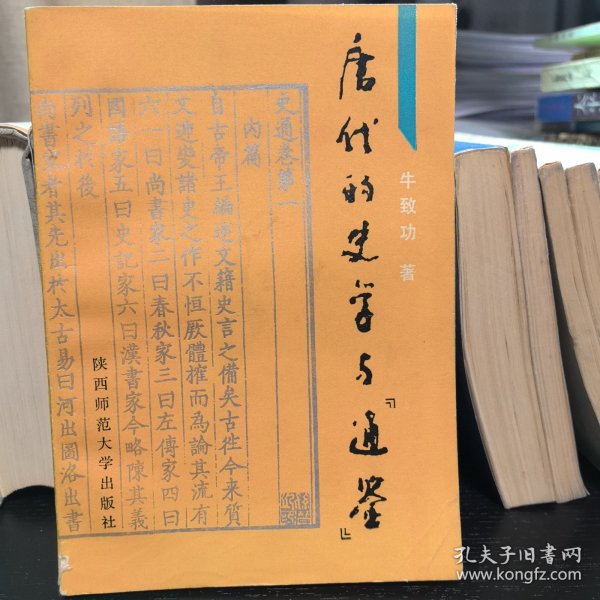 唐代的史学与『通鉴』
牛致功 著
史通卷第一
内篇
自古帝王編述文籍史言之備矣古往今来質
文遞變諸史之作不恒厥體搉而為論其流有
六一曰尚書家二曰春秋家三曰左傳家四曰
國語家五曰史記家六曰漢書家今略陳其義
列之於後
尚書家者其先出於太古易曰河出圖洛出書
陕西师范大学出版社
孔夫子旧书网
www.kongfz.com